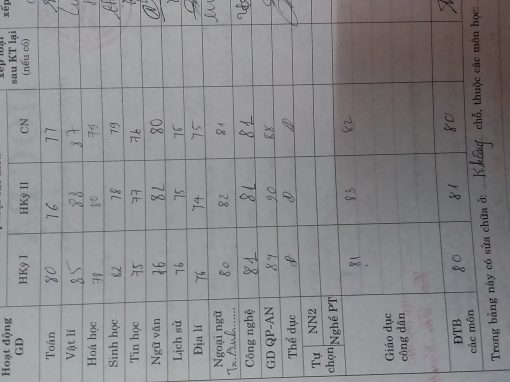 Hoạt động GD HKỳ I HKỳ II CN sau KT lại (nếu có)
Toán 80 76 77
Vật lí 85 88 87
Hoá học 78 80 79
Sinh học 82 78 79
Tin học 75 77 76
Ngữ văn 76 82 80
Lịch sử 76 75 75
Địa lí 76 74 75
Ngoại ngữ 80 82 81
Công nghệ 81 81 81
GD QP-AN 84 90 88
Thể dục Đ Đ Đ
Tự chọn NN2
Nghề PT
Giáo dục công dân 81 83 82
ĐTB các môn 80 81 80
Trong bảng này có sửa chữa ở: Không chỗ, thuộc các môn học: